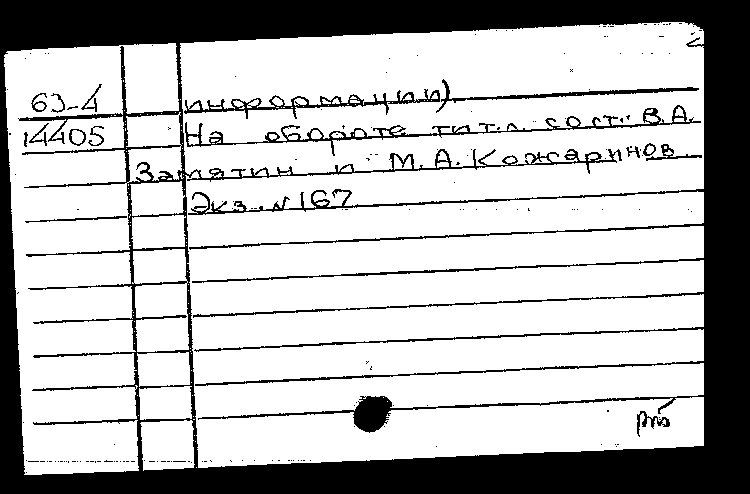 2
63-4 информации).
14405 На обороте тит.л. сост.: В.А.
Замятин и М.А. Кожаринов.
Экз. № 167